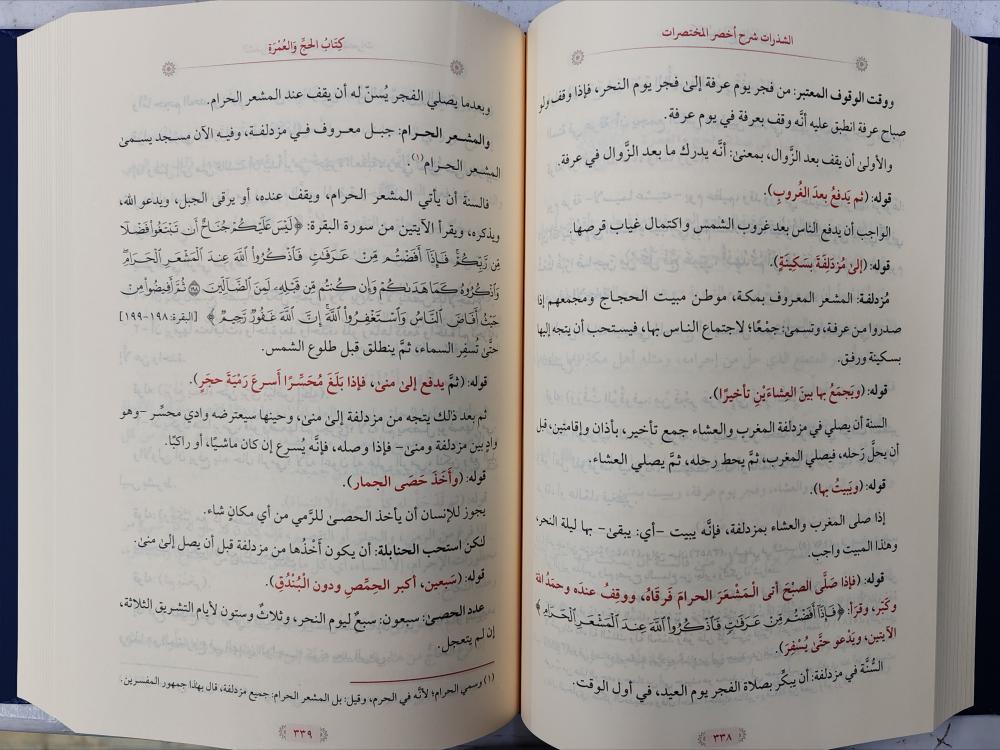 الشذرات شرح أخصر المختصرات
ووقت الوقوف المعتبر: من فجر يوم عرفة إلى فجر يوم النحر، فإذا وقف ولو
صباح عرفة انطبق عليه أنَّه وقف بعرفة في يوم عرفة.
والأولى أن يقف بعد الزَّوال، بمعنى: أنَّه يدرك ما بعد الزَّوال في عرفة.
قوله: (ثم يَدفعُ بعدَ الغُروبِ).
الواجب أن يدفع الناس بعد غروب الشمس واكتمال غياب قرصها.
قوله: (إلى مُزدَلِفَةَ بسَكينَةٍ).
مُزدلفة: المشعر المعروف بمكة، موطن مبيت الحجاج ومجمعهم إذا
صدروا من عرفة، وتسمى: جمْعًا؛ لاجتماع الناس بها، فيستحب أن يتجه إليها
بسكينة ورفق.
قوله: (ويَجمَعُ بها بينَ العِشاءَيْنِ تأخيرًا).
السنة أن يصلي في مزدلفة المغرب والعشاء جمع تأخير، بأذان وإقامتين، قبل
أن يحلَّ رَحله، فيصلي المغرب، ثمَّ يحط رحله، ثمَّ يصلي العشاء.
قوله: (ويَبيتُ بها).
إذا صلى المغرب والعشاء بمزدلفة، فإنَّه يبيت -أي: يبقى- بها ليلة النحر،
وهذا المبيت واجب.
قوله: (فإذا صَلَّى الصبْحَ أتى الْمَشْعَرَ الحرامَ فَرقَاهُ، ووقِفُ عندَه وحمَدُ الله
وكبَّر، وقرَأ: ﴿فَإِذَآ أَفَضْتُم مِّنْ عَرَفَٰتٍ فَٱذْكُرُوا۟ ٱللَّهَ عِندَ ٱلْمَشْعَرِ ٱلْحَرَامِ﴾
الآيتين، ويَدْعو حتَّى يُسْفِرَ).
السُّنَّة في مزدلفة: أن يبكِّر بصلاة الفجر يوم العيد، في أول الوقت.
٣٣٨
كِتَابُ الحَجِّ وَالعُمْرَةِ
وبعدما يصلي الفجر يُسنّ له أن يقف عند المشعر الحرام.
والمشعر الحرام: جبل معروف في مزدلفة، وفيه الآن مسجد يسمى
المشعر الحرام(١).
فالسنة أن يأتي المشعر الحرام، ويقف عنده، أو يرقى الجبل، ويدعو الله،
ويذكره، ويقرأ الآيتين من سورة البقرة: ﴿لَيْسَ عَلَيْكُمْ جُنَاحٌ أَن تَبْتَغُوا۟ فَضْلًا
مِّن رَّبِّكُمْ ۚ فَإِذَآ أَفَضْتُم مِّنْ عَرَفَٰتٍ فَٱذْكُرُوا۟ ٱللَّهَ عِندَ ٱلْمَشْعَرِ ٱلْحَرَامِ ۖ
وَٱذْكُرُوهُ كَمَا هَدَىٰكُمْ وَإِن كُنتُم مِّن قَبْلِهِۦ لَمِنَ ٱلضَّآلِّينَ ١٩٨ ثُمَّ أَفِيضُوا۟ مِنْ
حَيْثُ أَفَاضَ ٱلنَّاسُ وَٱسْتَغْفِرُوا۟ ٱللَّهَ ۚ إِنَّ ٱللَّهَ غَفُورٌ رَّحِيمٌ﴾ [البقرة: ١٩٨-١٩٩]
حتَّى تُسفِر السماء، ثمَّ ينطلق قبل طلوع الشمس.
قوله: (ثمَّ يدفع إلى منى، فإذا بَلَغَ مُحَسِّرًا أَسرعَ رَميَةَ حجَرٍ).
ثم بعد ذلك يتجه من مزدلفة إلى منى، وحينها سيعترضه وادي محسِّر -وهو
وادٍ بين مزدلفة ومنى- فإذا وصله، فإنَّه يُسرع إن كان ماشيًا، أو راكبًا.
قوله: (وأَخَذَ حَصَى الجمار).
يجوز للإنسان أن يأخذ الحصىٰ للرَّمي من أي مكانٍ شاء.
لكن استحب الحنابلة: أن يكون أَخْذُها من مزدلفة قبل أن يصل إلى منى.
قوله: (سَبعين، أكبر الحِمِّصِ ودون الْبُنْدُقِ).
عدد الحصىٰ: سبعون: سبعٌ ليوم النحر، وثلاثٌ وستون لأيام التشريق الثلاثة،
إن لم يتعجل.
(١) وسمي الحرام؛ لأنَّه في الحرم، وقيل: بل المشعر الحرام: جميع مزدلفة، قال بهذا جمهور المفسرين.
٣٣٩